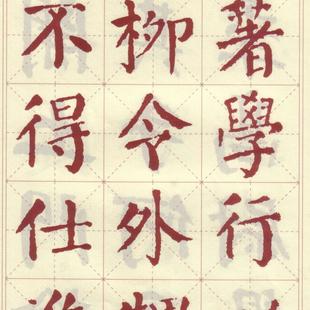 著學行
柳令外
不得仕